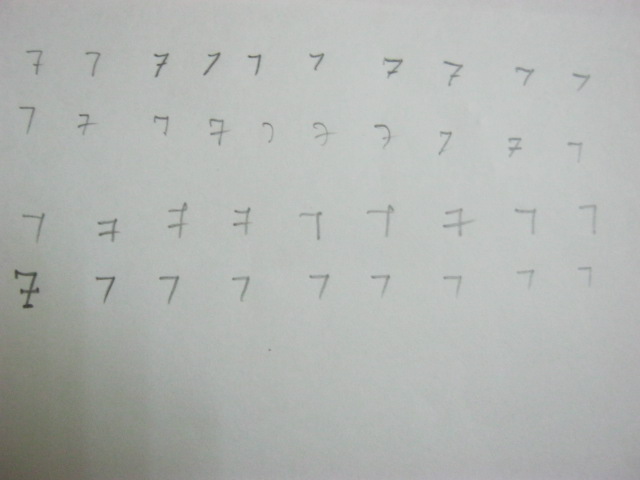 7 7 7 7 7 7 7 7 7 7
7 7 7 7 7 7 7 7 7 7
7 7 7 7 7 7 7 7 7
7 7 7 7 7 7 7 7 7